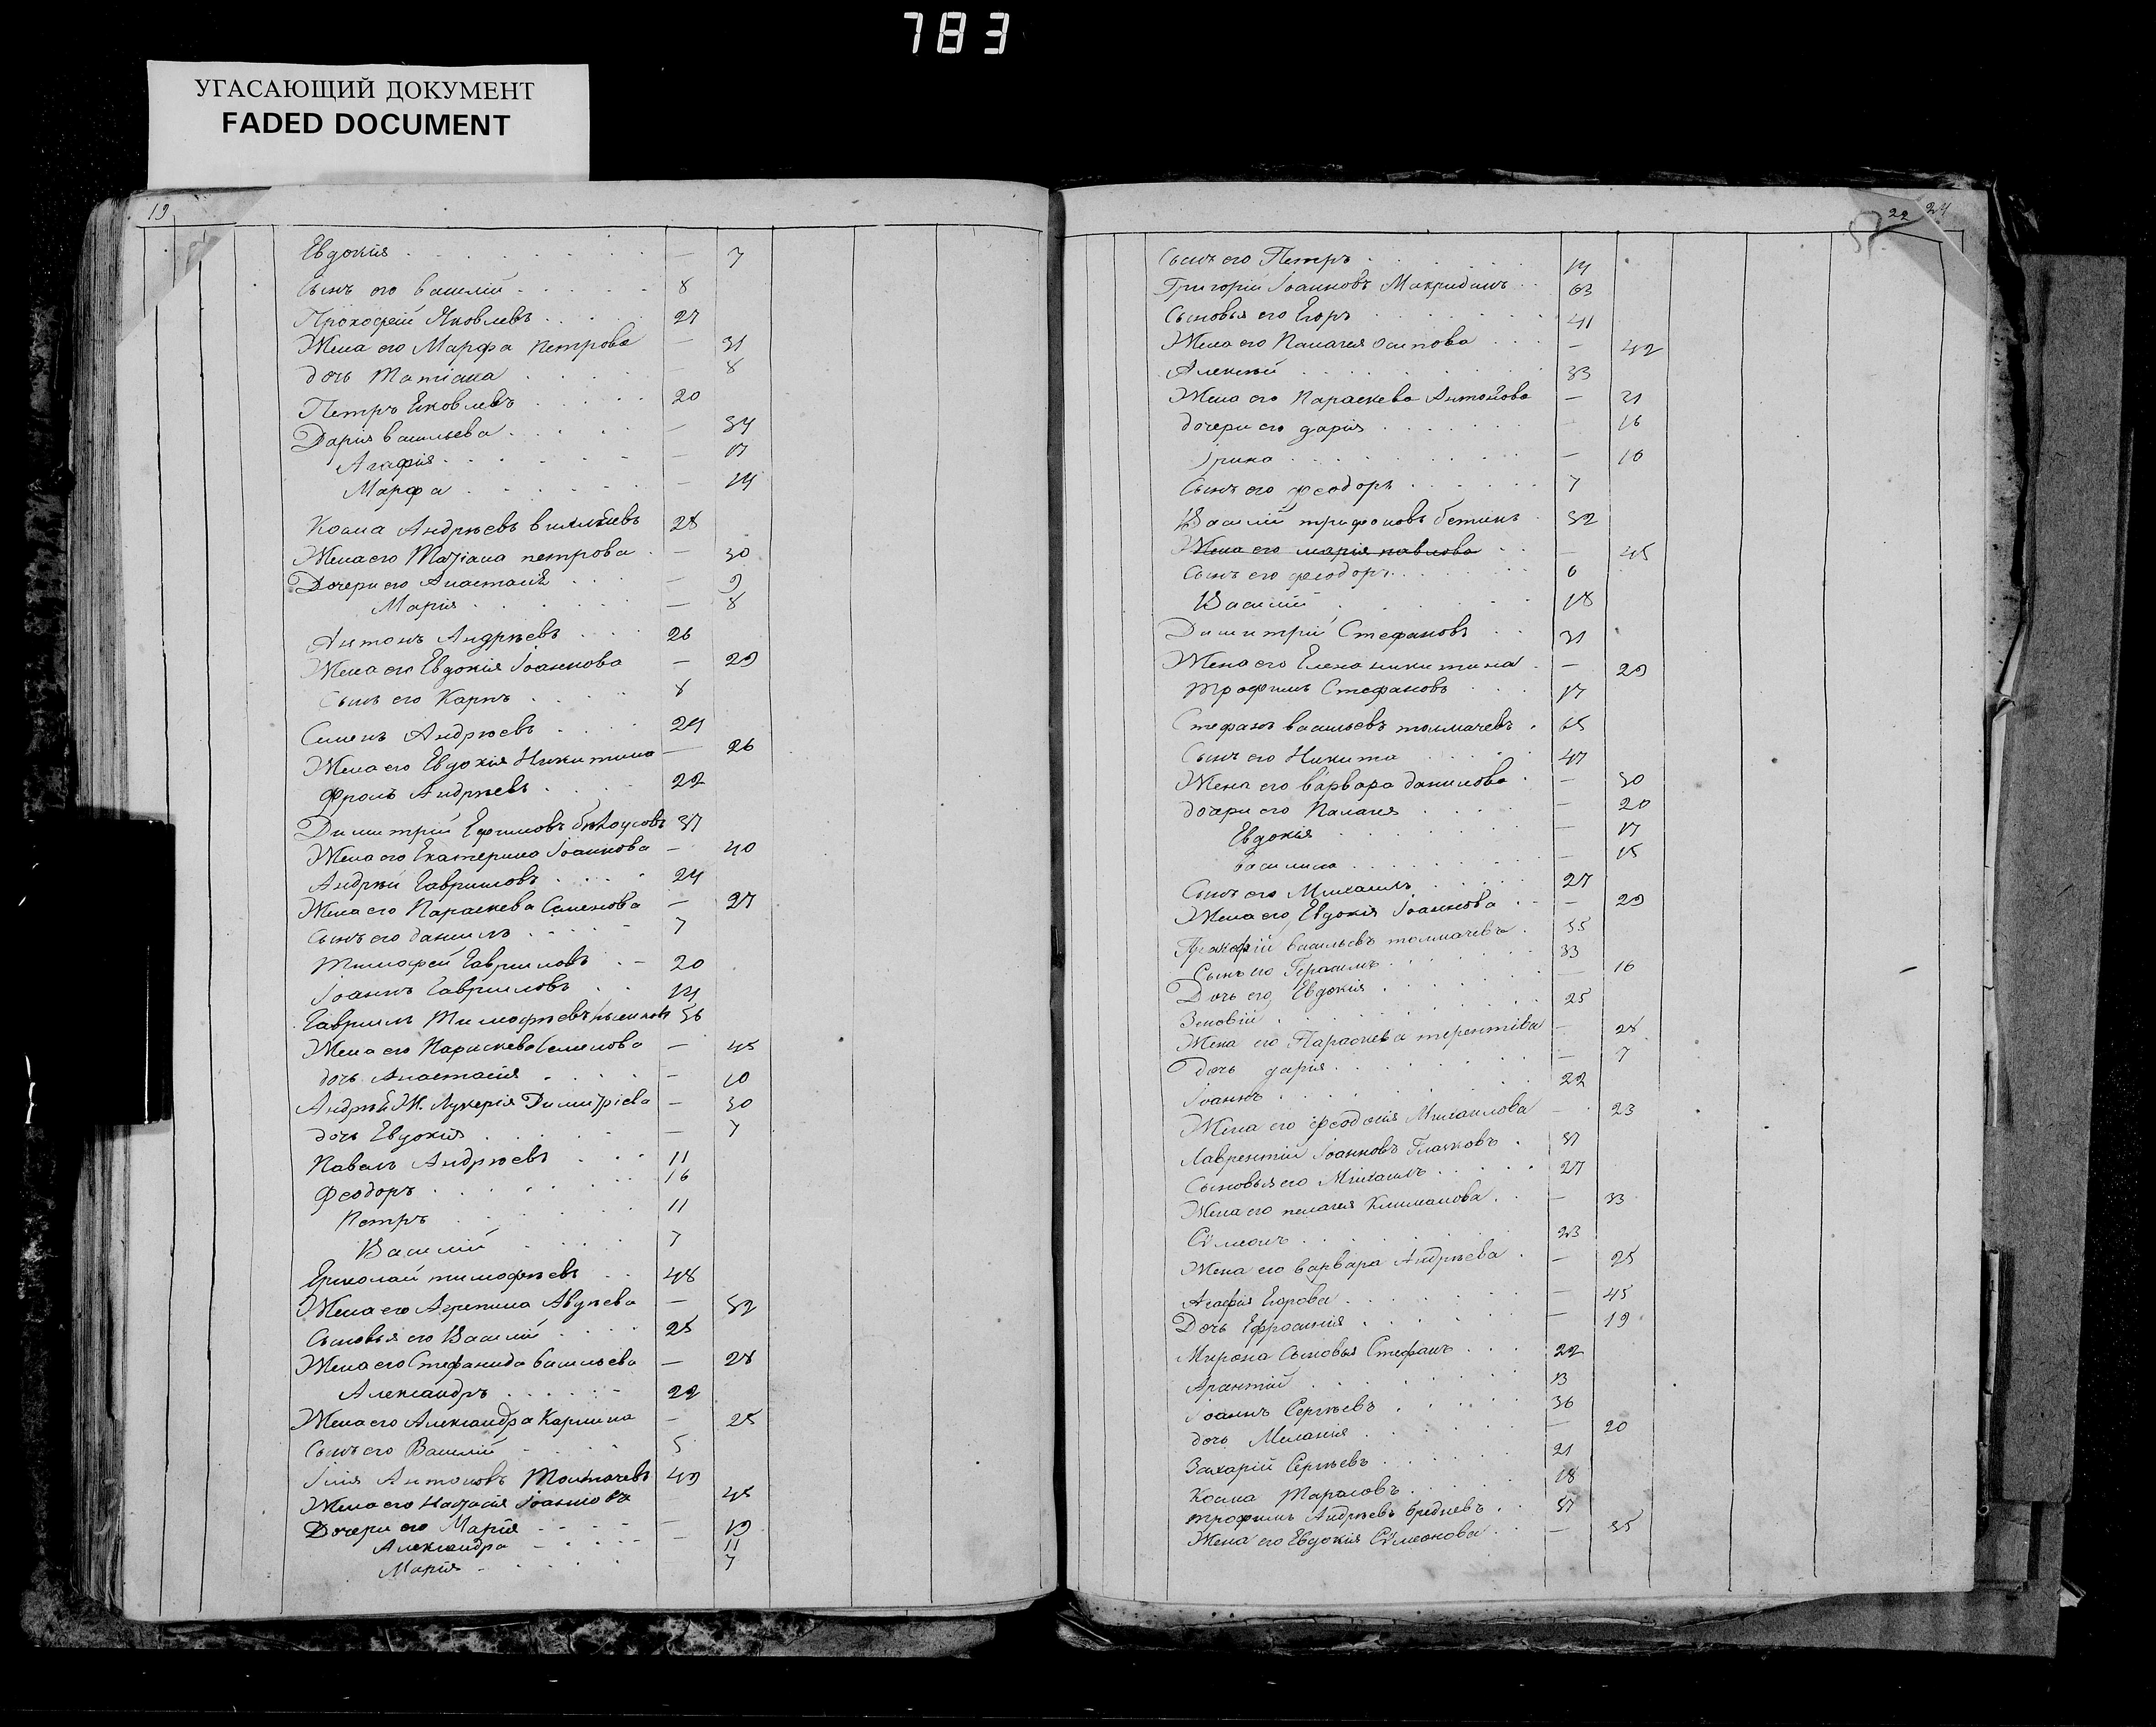 783
УГАСАЮЩИЙ ДОКУМЕНТ
FADED DOCUMENT
19
Евдокія — 7
Сынъ его василій 8
Прокофій Яковлевъ 27
Жена его Марфа петрова — 31
дочь Татіана — 8
Петръ Яковлевъ 20
Дарія васильева — 34
Агафія — 17
Марфа — 14
Косма Андрѣевъ 28
Жена его Татіана петрова — 30
Дочери его Анастасія — 9
Марія — 8
Антонъ Андрѣевъ 26
Жена его Евдокія Іоаннова — 29
Сынъ его Карпъ 8
Симеонъ Андрѣевъ 24
Жена его Евдокія Никитина — 26
Фролъ Андрѣевъ 22
Димитрій Ефимовъ бѣлоусовъ 37
Жена его Екатерина Іоаннова — 40
Андрей Гавриловъ 24
Жена его Параскева Семенова — 27
Сынъ его данiилъ 7
Тимофей Гавриловъ 20
Іоаннъ Гавриловъ 14
Гавриилъ Тимофѣевъ 56
Жена его Параскева Семенова — 45
дочь Анастасія — 10
Андрей Ж. Лукерія Димитріева — 30
дочь Евдокія — 7
Павелъ Андрѣевъ 11
Феодоръ 16
Петръ 11
Василій 7
Ермолай тимофѣевъ 48
Жена его Агрепина Авдѣева — 52
Сыновья его Василій 25
Жена его Стефанида васильева — 28
Александръ 22
Жена его Александра Карпина — 25
Сынъ его Василій 5
Илія Антоновъ Толмачевъ 49
Жена его Настасія Іоаннова 48
Дочери его Марія — 19
Александра — 11
Марія 7
57 22 24
Сынъ его Петръ 14
Григорій Іоанновъ Макридинъ 63
Сыновья его Егоръ 41
Жена его Палагея осипова — 42
Алексѣй 33
Жена его Параскева Антонова — 31
дочери его дарія — 16
Ірина — 10
Сынъ его феодоръ 7
Василій трифоновъ бетинъ 52
Жена его марія павлова — 45
Сынъ его феодоръ 6
Василій 18
Димитрій Стефановъ 31
Жена его Елена никитина — 29
трофимъ Стефановъ 17
Стефанъ васильевъ толмачевъ 65
Сынъ его Никита 47
Жена его варвара данилова — 50
дочери его Палагея — 20
Евдокія — 17
василиса — 15
Сынъ его Михаилъ 27
Жена его Евдокія Іоаннова — 29
Прокофій васильевъ толмачевъ 55
Сынъ его Герасимъ 33
Дочь его Евдокія — 16
Зиновій 25
Жена его Параскева терентіва — 28
Дочь дарія — 7
Іоаннъ 22
Жена его феодосія Михаилова — 23
Лаврентій Іоанновъ Глазковъ 57
Сыновья его Михаилъ 27
Жена его пелагея Климанова — 33
Сѵмеонъ 23
Жена его варвара Андрѣева — 25
Агафія Егорова — 45
Дочь Ефросинія — 19
Мирона Сыновья Стефанъ 22
Арантій 13
Іоаннъ Сергѣевъ 36
дочь Меланія — 20
Захарій Сергѣевъ 21
Косма Тарасовъ 18
трофимъ Андрѣевъ бредневъ 57
Жена его Евдокія Сѵмеонова — 55